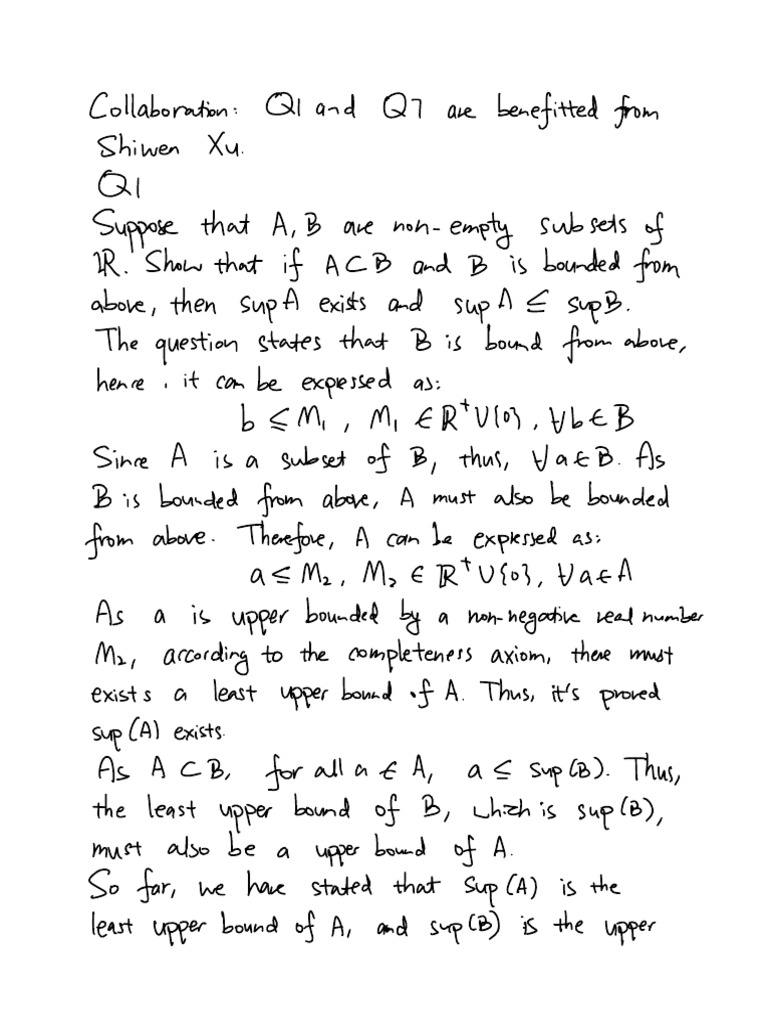 Collaboration: Q1 and Q7 are benefitted from
Shiwen Xu.
Q1
Suppose that A, B are non-empty subsets of
ℝ. Show that if A⊂B and B is bounded from
above, then sup A exists and sup A ≤ sup B.
The question states that B is bound from above,
hence, it can be expressed as:
b ≤ M₁, M₁ ∈ ℝ⁺∪{0}, ∀b∈B
Since A is a subset of B, thus, ∀a∈B. As
B is bounded from above, A must also be bounded
from above. Therefore, A can be expressed as:
a ≤ M₂, M₂ ∈ ℝ⁺∪{0}, ∀a∈A
As a is upper bounded by a non-negative real number
M₂, according to the completeness axiom, there must
exists a least upper bound of A. Thus, it's proved
sup(A) exists.
As A⊂B, for all a∈A, a ≤ sup(B). Thus,
the least upper bound of B, which is sup(B),
must also be a upper bound of A.
So far, we have stated that sup(A) is the
least upper bound of A, and sup(B) is the upper